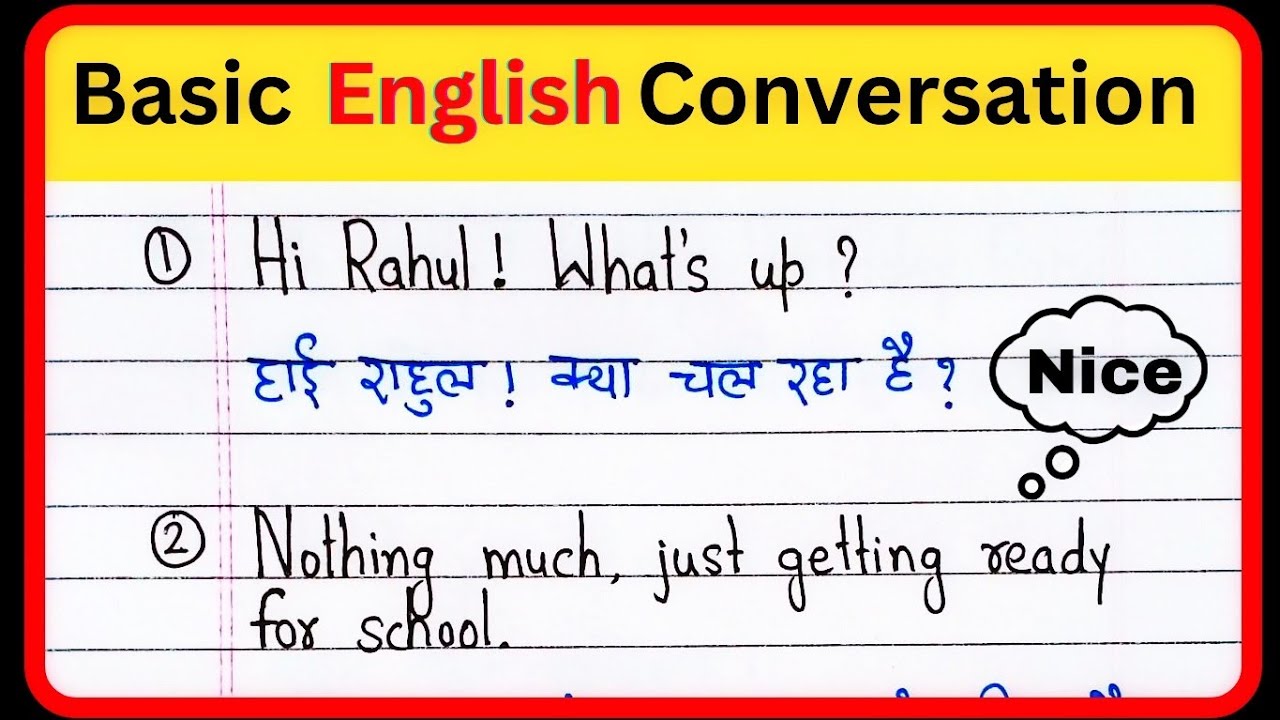 Basic English Conversation
① Hi Rahul! What's up?
हाई राहुल! क्या चल रहा है?
Nice
② Nothing much, just getting ready
for school.